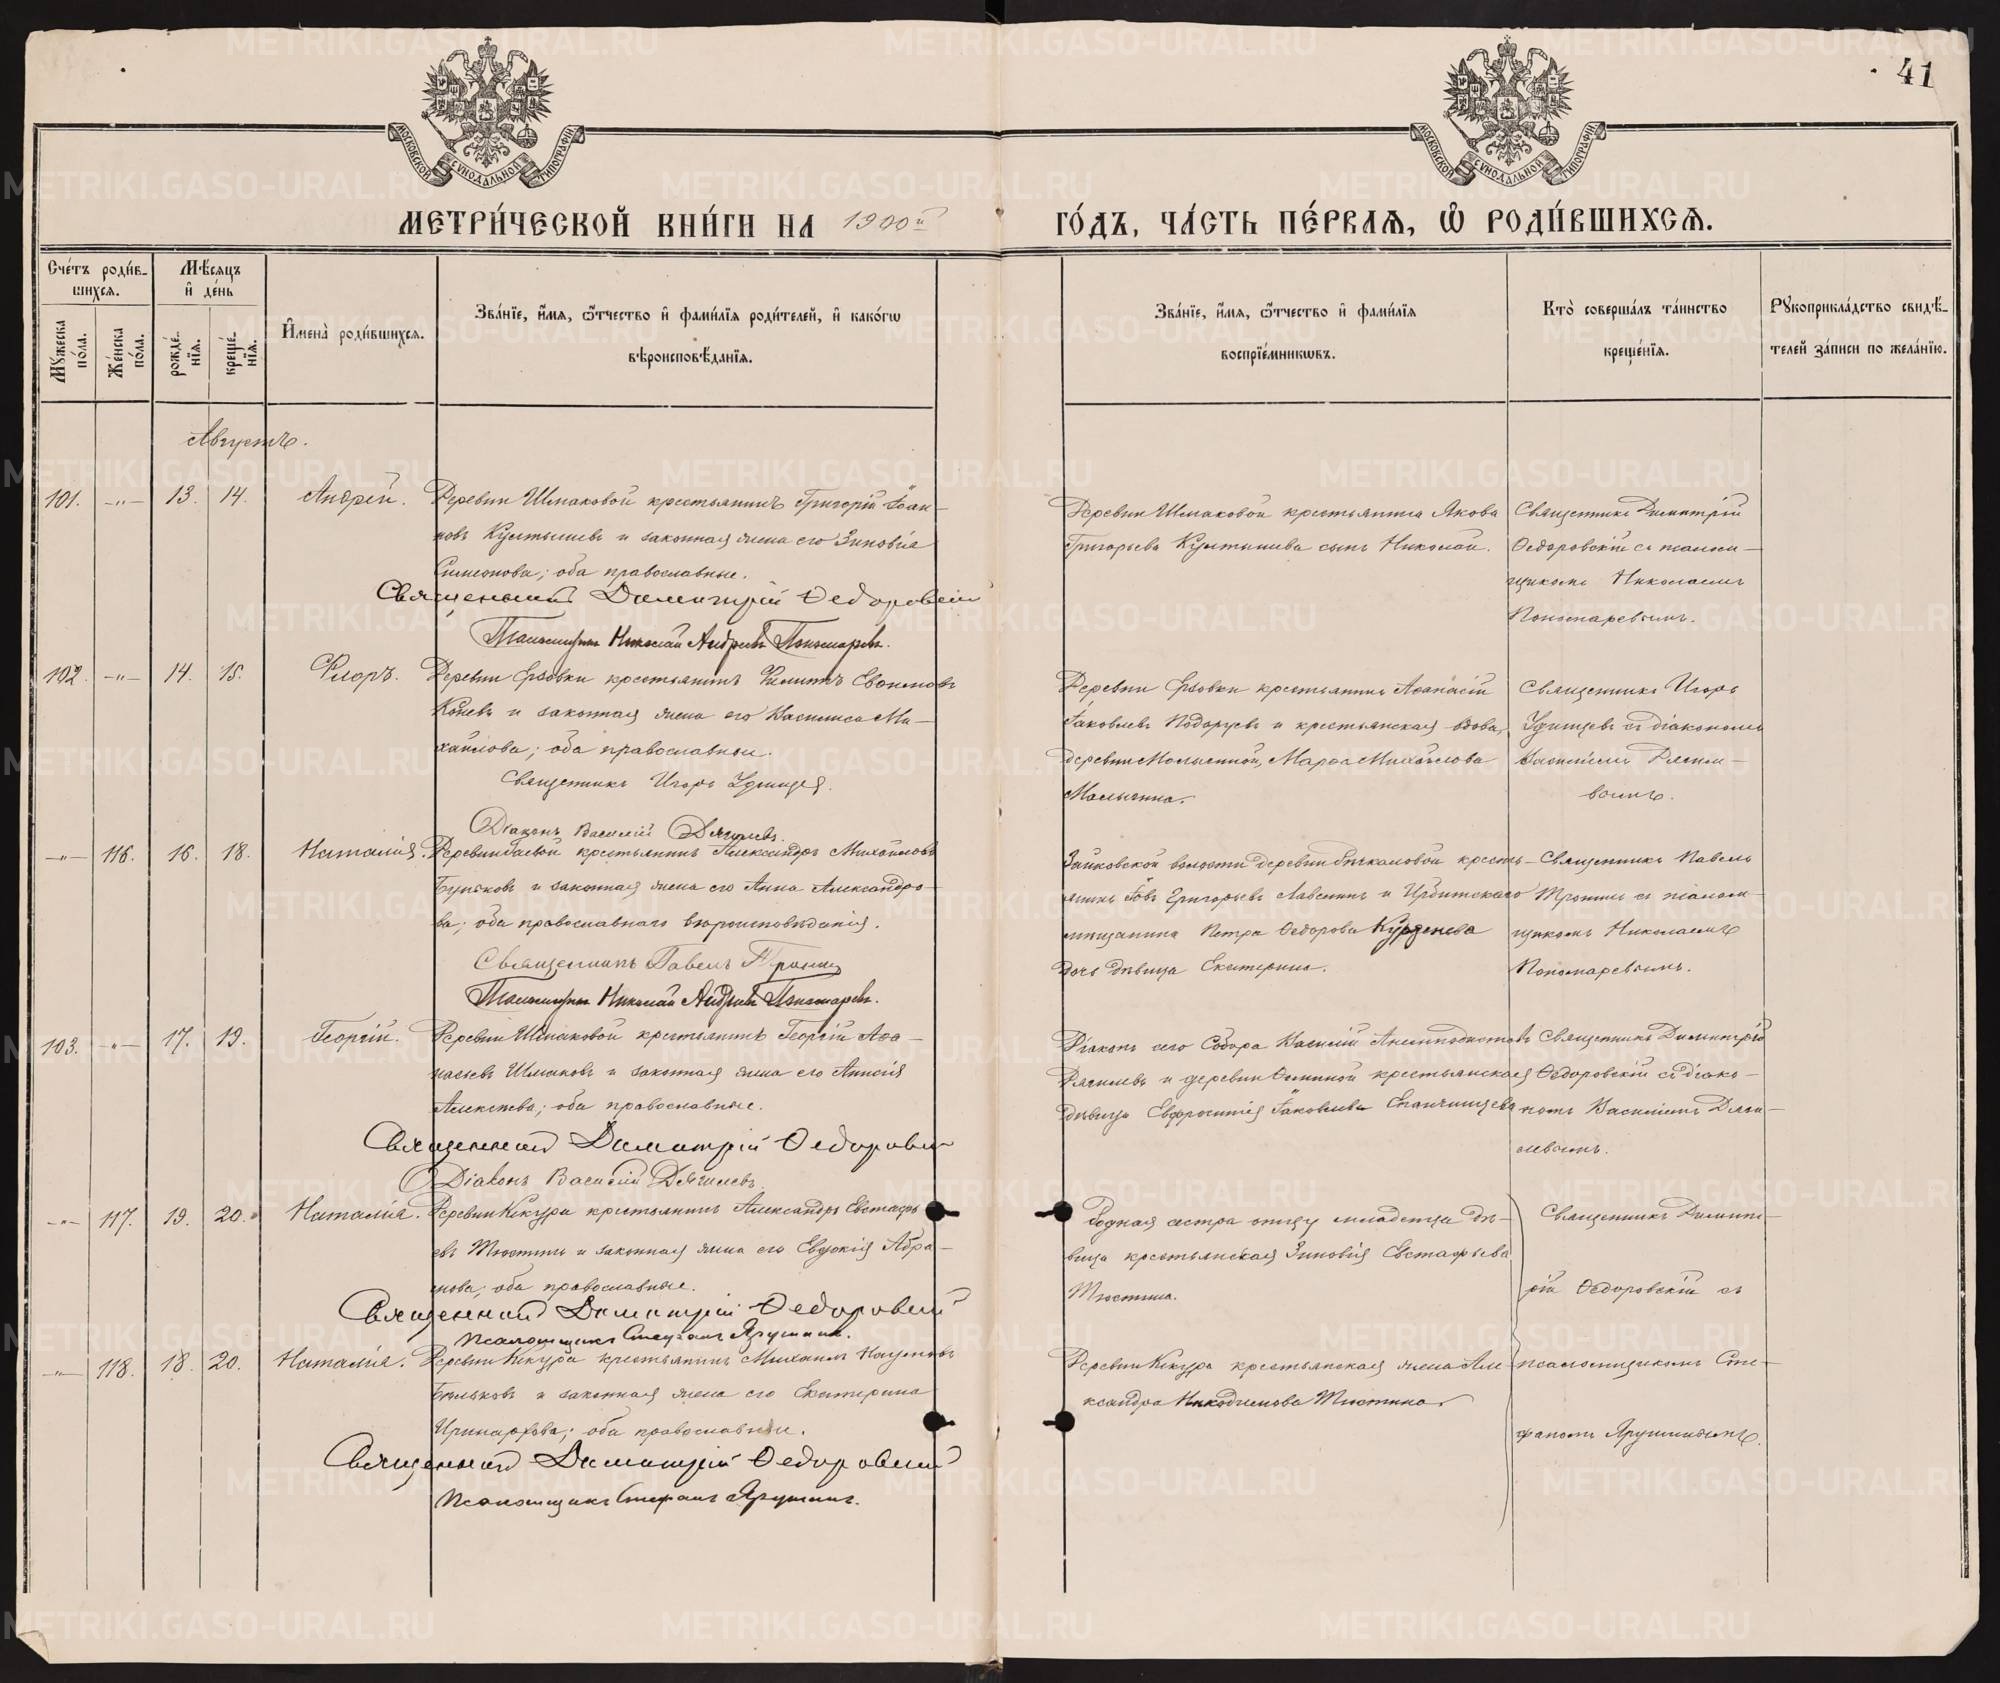 41
МОСКОВСКОЙ СѴНОДАЛЬНОЙ ТИПОГРАФІИ
МОСКОВСКОЙ СѴНОДАЛЬНОЙ ТИПОГРАФІИ
МЕТРИ́ЧЕСКОЙ КНИ́ГИ НА 1900й ГО́ДЪ, ЧА́СТЬ ПЕ́РВАЯ, Ѡ҆ РОДИ́ВШИХСЯ.
Сче́тъ роди́в-
шихся.
Мѣ́сяцъ
и҆ де́нь
Мꙋ́жеска по́ла.
Же́нска по́ла.
рожде́-нїя.
креще́-нїя.
И҆мена̀ роди́вшихся.
Зва́нїе, и҆́мя, ѻ҆́тчество и҆ фами́лїя роди́телей, и҆ како́гѡ
вѣроисповѣ́данїя.
Зва́нїе, и҆́мя, ѻ҆́тчество и҆ фами́лїя
воспрїе́мникѡвъ.
Кто̀ соверша́лъ та́инство
креще́нїя.
Рꙋкоприкла́дство свидѣ́-
телей за́писи по жела́нїю.
Августъ.
101. —"— 13. 14. Андрей.
Деревни Шмаковой крестьянинъ Григорій Іоан-
новъ Култышевъ и законная жена его Зиновія
Симеонова; оба православные.
Священникъ Димитрій Ѳедоровскій
Псаломщикъ Николай Андреевъ Пономаревъ.
Деревни Шмаковой крестьянина Якова
Григорьева Култышева сынъ Николай.
Священникъ Димитрій
Ѳедоровскій съ псалом-
щикомъ Николаемъ
Пономаревымъ.
102. —"— 14. 15. Флоръ.
Деревни крестьянинъ Филиппъ Евѳимовъ
Коневъ и законная жена его Василиса Ми-
хайлова; оба православные.
Священникъ Игорь Удинцев.
Діаконъ Василій Дягилевъ.
Деревни крестьянинъ Аѳанасій
Іаковлевъ и крестьянская вдова,
деревни Марѳа Михайлова
Мальгина.
Священникъ Игорь
Удинцевъ съ діакономъ
Василіемъ Дягиле-
вымъ.
—"— 116. 16. 18. Наталія.
Деревни крестьянинъ Александръ Михайловъ
Буньковъ и законная жена его Анна Александро-
ва; оба православнаго вѣроисповѣданія.
Священникъ Павелъ Тронинъ
Псаломщикъ Николай Андреевъ Пономаревъ.
Зайковской волости деревни крестья-
янинъ Іовъ Григорьевъ и Ирбитскаго
мѣщанина Петра Ѳедорова
дочь дѣвица Екатерина.
Священникъ Павелъ
Тронинъ съ псалом-
щикомъ Николаемъ
Пономаревымъ.
103. —"— 17. 19. Георгій.
Деревни Шмаковой крестьянинъ Георгій Аѳа-
насьевъ Шмаковъ и законная жена его Анисія
Алексѣева; оба православные.
Священникъ Димитрій Ѳедоровскій
Діаконъ Василій Дягилевъ.
Діаконъ сего Собора Василій Анемподистовъ
Дягилевъ и деревни Ѳоминой крестьянская
дѣвица Евфросинія Іаковлева Епанчинцева
Священникъ Димитрій
Ѳедоровскій съ діако-
номъ Василіемъ Дяги-
левымъ.
—"— 117. 19. 20. Наталія.
Деревни Кекура крестьянинъ Александръ Евстафь-
евъ Тюстинъ и законная жена его Евдокія Абра-
мова; оба православные.
Священникъ Димитрій Ѳедоровскій
Псаломщикъ Стефанъ Ярушинъ.
Родная сестра отцу младенца дѣ-
вица крестьянская Зиновія Евстафьева
Тюстина.
Священникъ Димит-
рій Ѳедоровскій съ
—"— 118. 18. 20. Наталія.
Деревни Кекура крестьянинъ Михаилъ Наумовъ
Бѣльковъ и законная жена его Екатерина
Иринархова; оба православные.
Священникъ Димитрій Ѳедоровскій
Псаломщикъ Стефанъ Ярушинъ.
Деревни Кекура крестьянская жена Але-
ксандра Никодимова Тюстина.
псаломщикомъ Сте-
фаномъ Ярушинымъ.